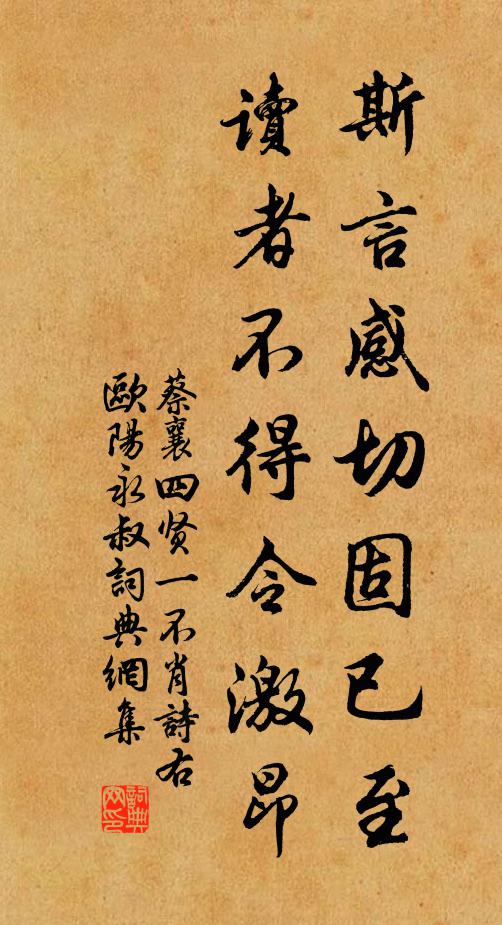 斯言感切固已至
读者不得令激昂
蔡襄四贤一不肖詩右
歐陽永叔詞典網集
詞典網印